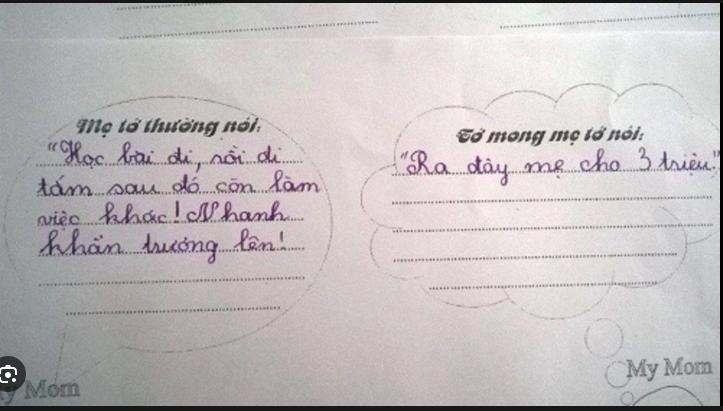 Mẹ tớ thường nói:
"Học bài đi, rồi đi
tắm sau đó còn làm
việc khác! Nhanh
khẩn trương lên!
My Mom
Tớ mong mẹ tớ nói:
"Ra đây mẹ cho 3 triệu!"
My Mom